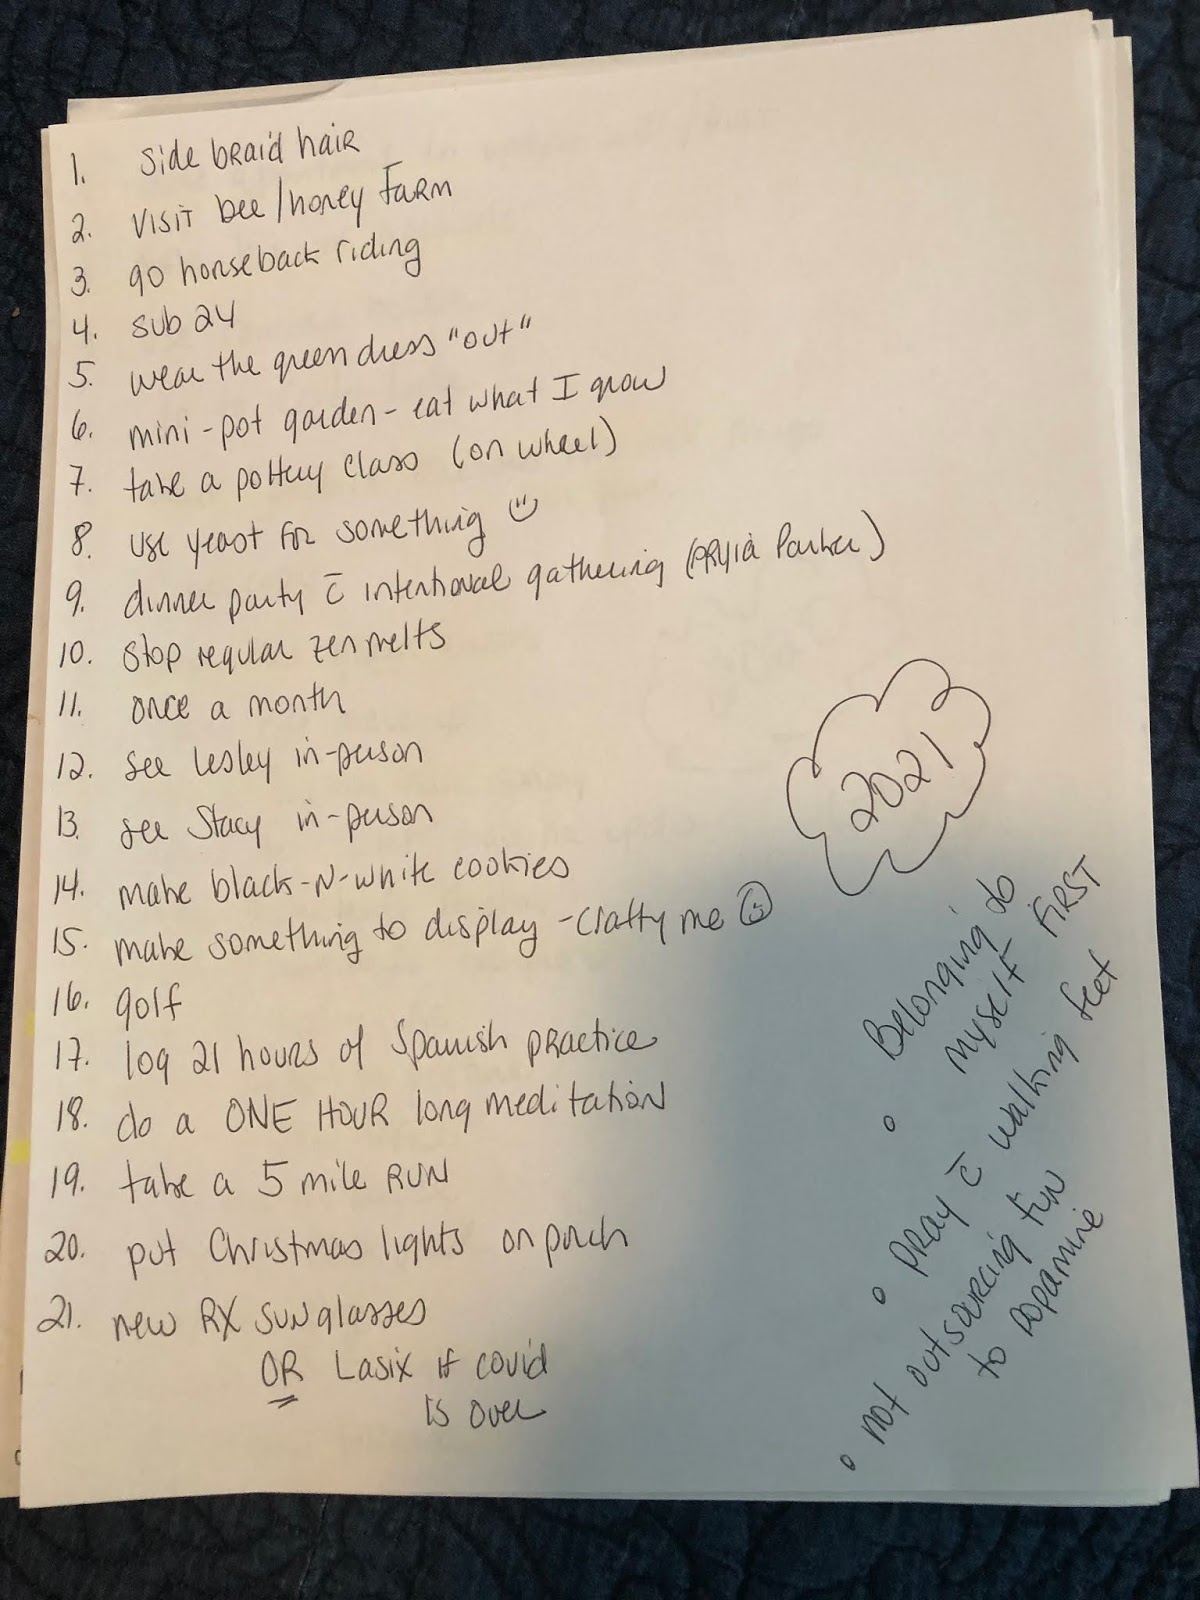 1. side braid hair
2. visit bee/honey farm
3. go horseback riding
4. sub 24
5. wear the green dress "out"
6. mini-pot garden - eat what I grow
7. take a pottery class (on wheel)
8. use yeast for something
9. dinner party c̄ intentional gathering (PRyia Parker)
10. stop regular zenmelts
11. once a month
12. see Lesley in-person
13. see Stacy in-person
14. make black-N-white cookies
15. make something to display - Crafty me
16. golf
17. log 21 hours of Spanish practice
18. do a ONE HOUR long meditation
19. take a 5 mile RUN
20. put Christmas lights on porch
21. new RX sunglasses
OR Lasix if covid
is over
2021
• Belonging to
myself FIRST
• PRAY c̄ walking feet
• not outsourcing fun
to Dopamine